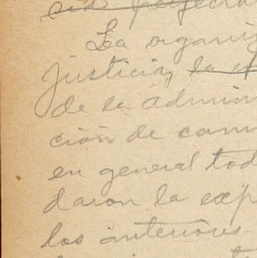 sido proyecta
La organi
justicia, la e
de la admin
ción de cam
en general tod
daron la exp
los anteriores